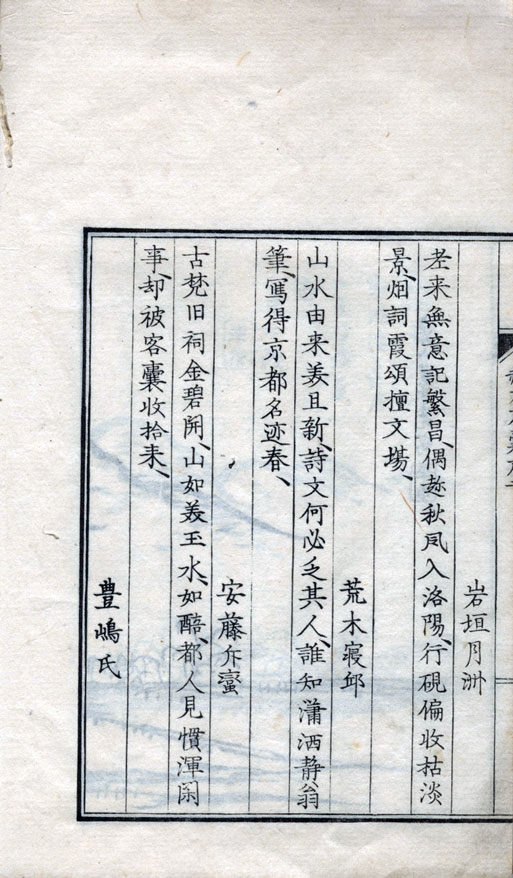 岩垣月洲
老来無意記繁昌、偶趂秋凨入洛陽、行硯偏收枯淡
景、烟詞霞頌擅文場、
荒木寝邱
山水由来羙且新、詩文何必乏其人、誰知瀟洒静翁
筆、寫得京都名迹春、
安藤斥蠻
古梵旧祠金碧開、山如羙玉水、如醅、都人見慣渾閑
事、却被客囊收拾来、
豊嶋氏